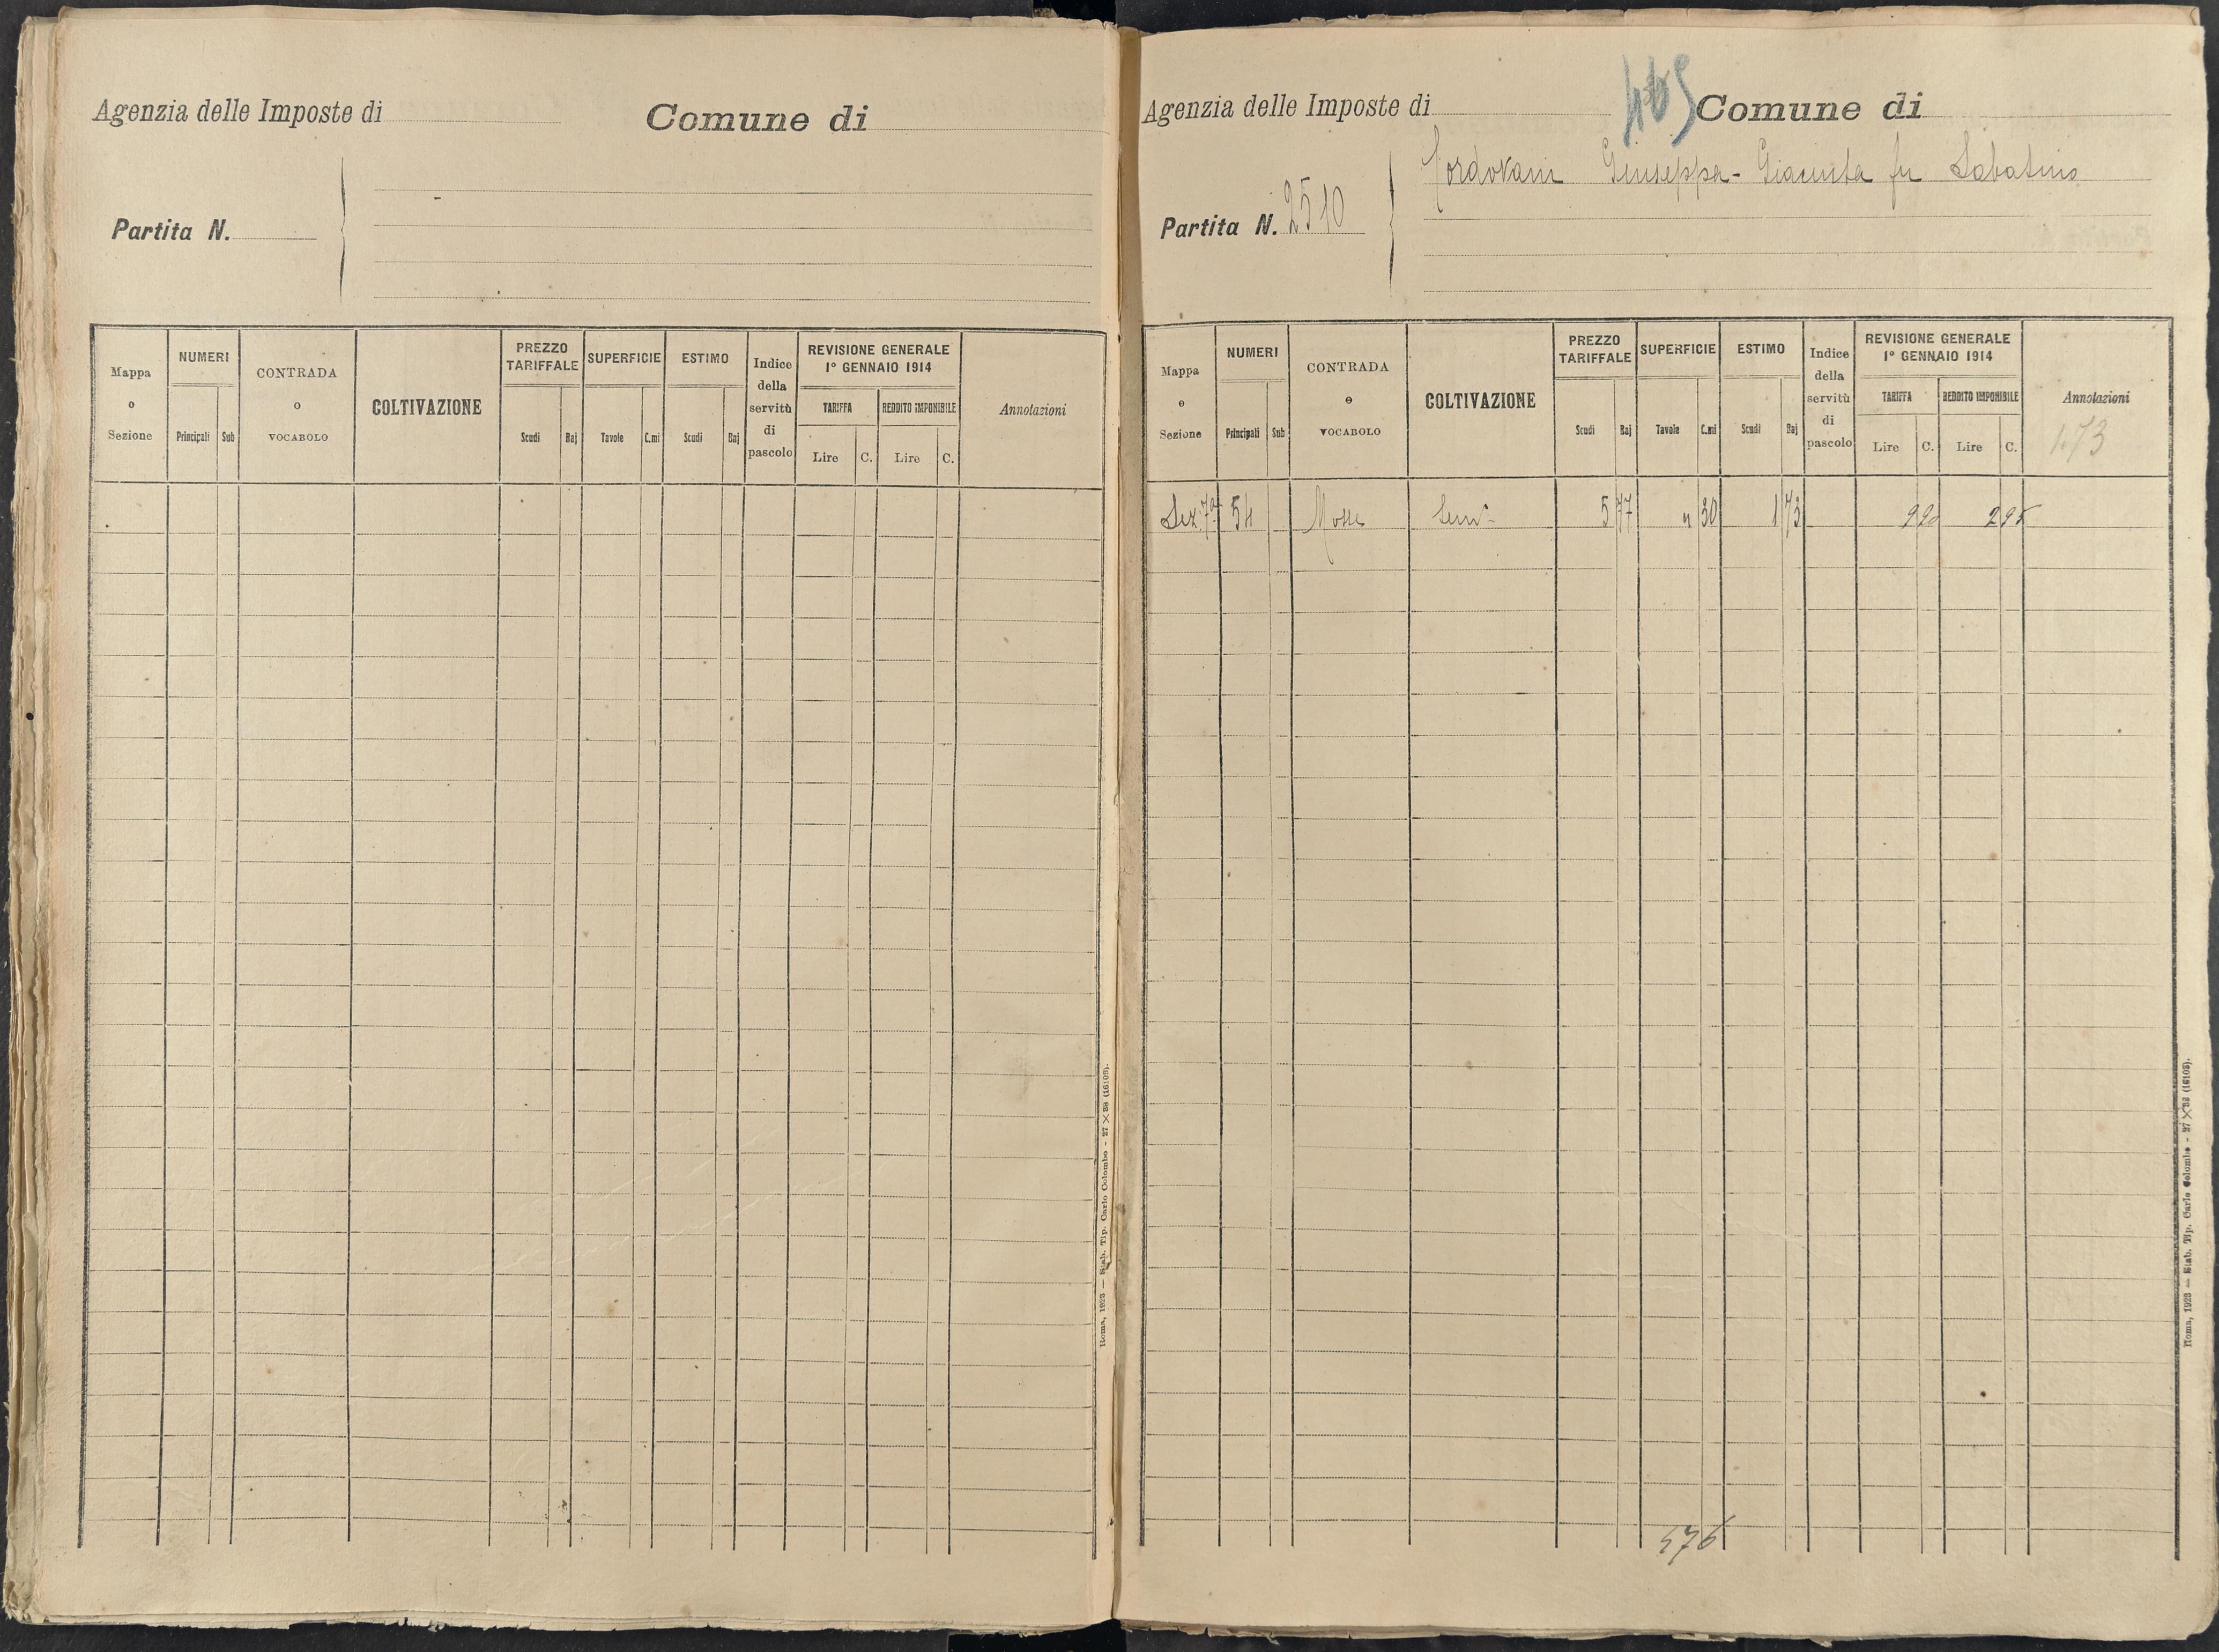 Agenzia delle Imposte di Comune di
Partita N.
Mappa o Sezione NUMERI Principali Sub CONTRADA o VOCABOLO COLTIVAZIONE PREZZO TARIFFALE Scudi Baj SUPERFICIE Tavole C.mi ESTIMO Scudi Baj Indice della servitù di pascolo REVISIONE GENERALE 1º GENNAIO 1914 TARIFFA Lire C. REDDITO IMPONIBILE Lire C. Annotazioni
Roma, 1923 — Stab. Tip. Carlo Colombo - 27 × 38 (16103).
Agenzia delle Imposte di Comune di
Giuseppa - Giacinta fu Sabatino
Partita N. 2510
Mappa e Sezione NUMERI Principali Sub CONTRADA e VOCABOLO COLTIVAZIONE PREZZO TARIFFALE Scudi Baj SUPERFICIE Tavole C.mi ESTIMO Scudi Baj Indice della servitù di pascolo REVISIONE GENERALE 1º GENNAIO 1914 TARIFFA Lire C. REDDITO IMPONIBILE Lire C. Annotazioni
1.73
Sez. 7ª 54 5 77 30 1 73
576
Roma, 1923 — Stab. Tip. Carlo Colombo - 27 × 38 (16103).